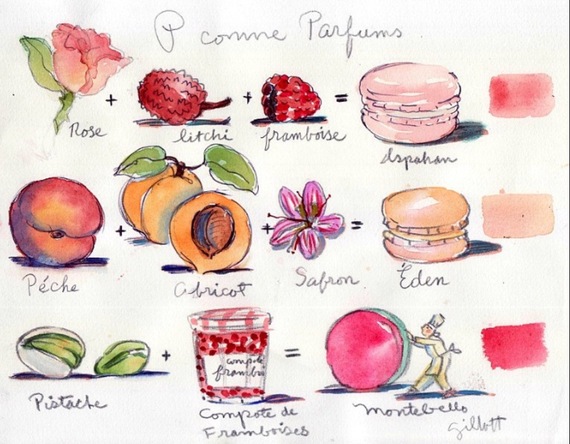 P comme Parfums
Rose + litchi + framboise = Ispahan
Pêche + Abricot + Safron = Éden
compote
frambois
Pistache + Compote de
Framboises = Montebello
gillott